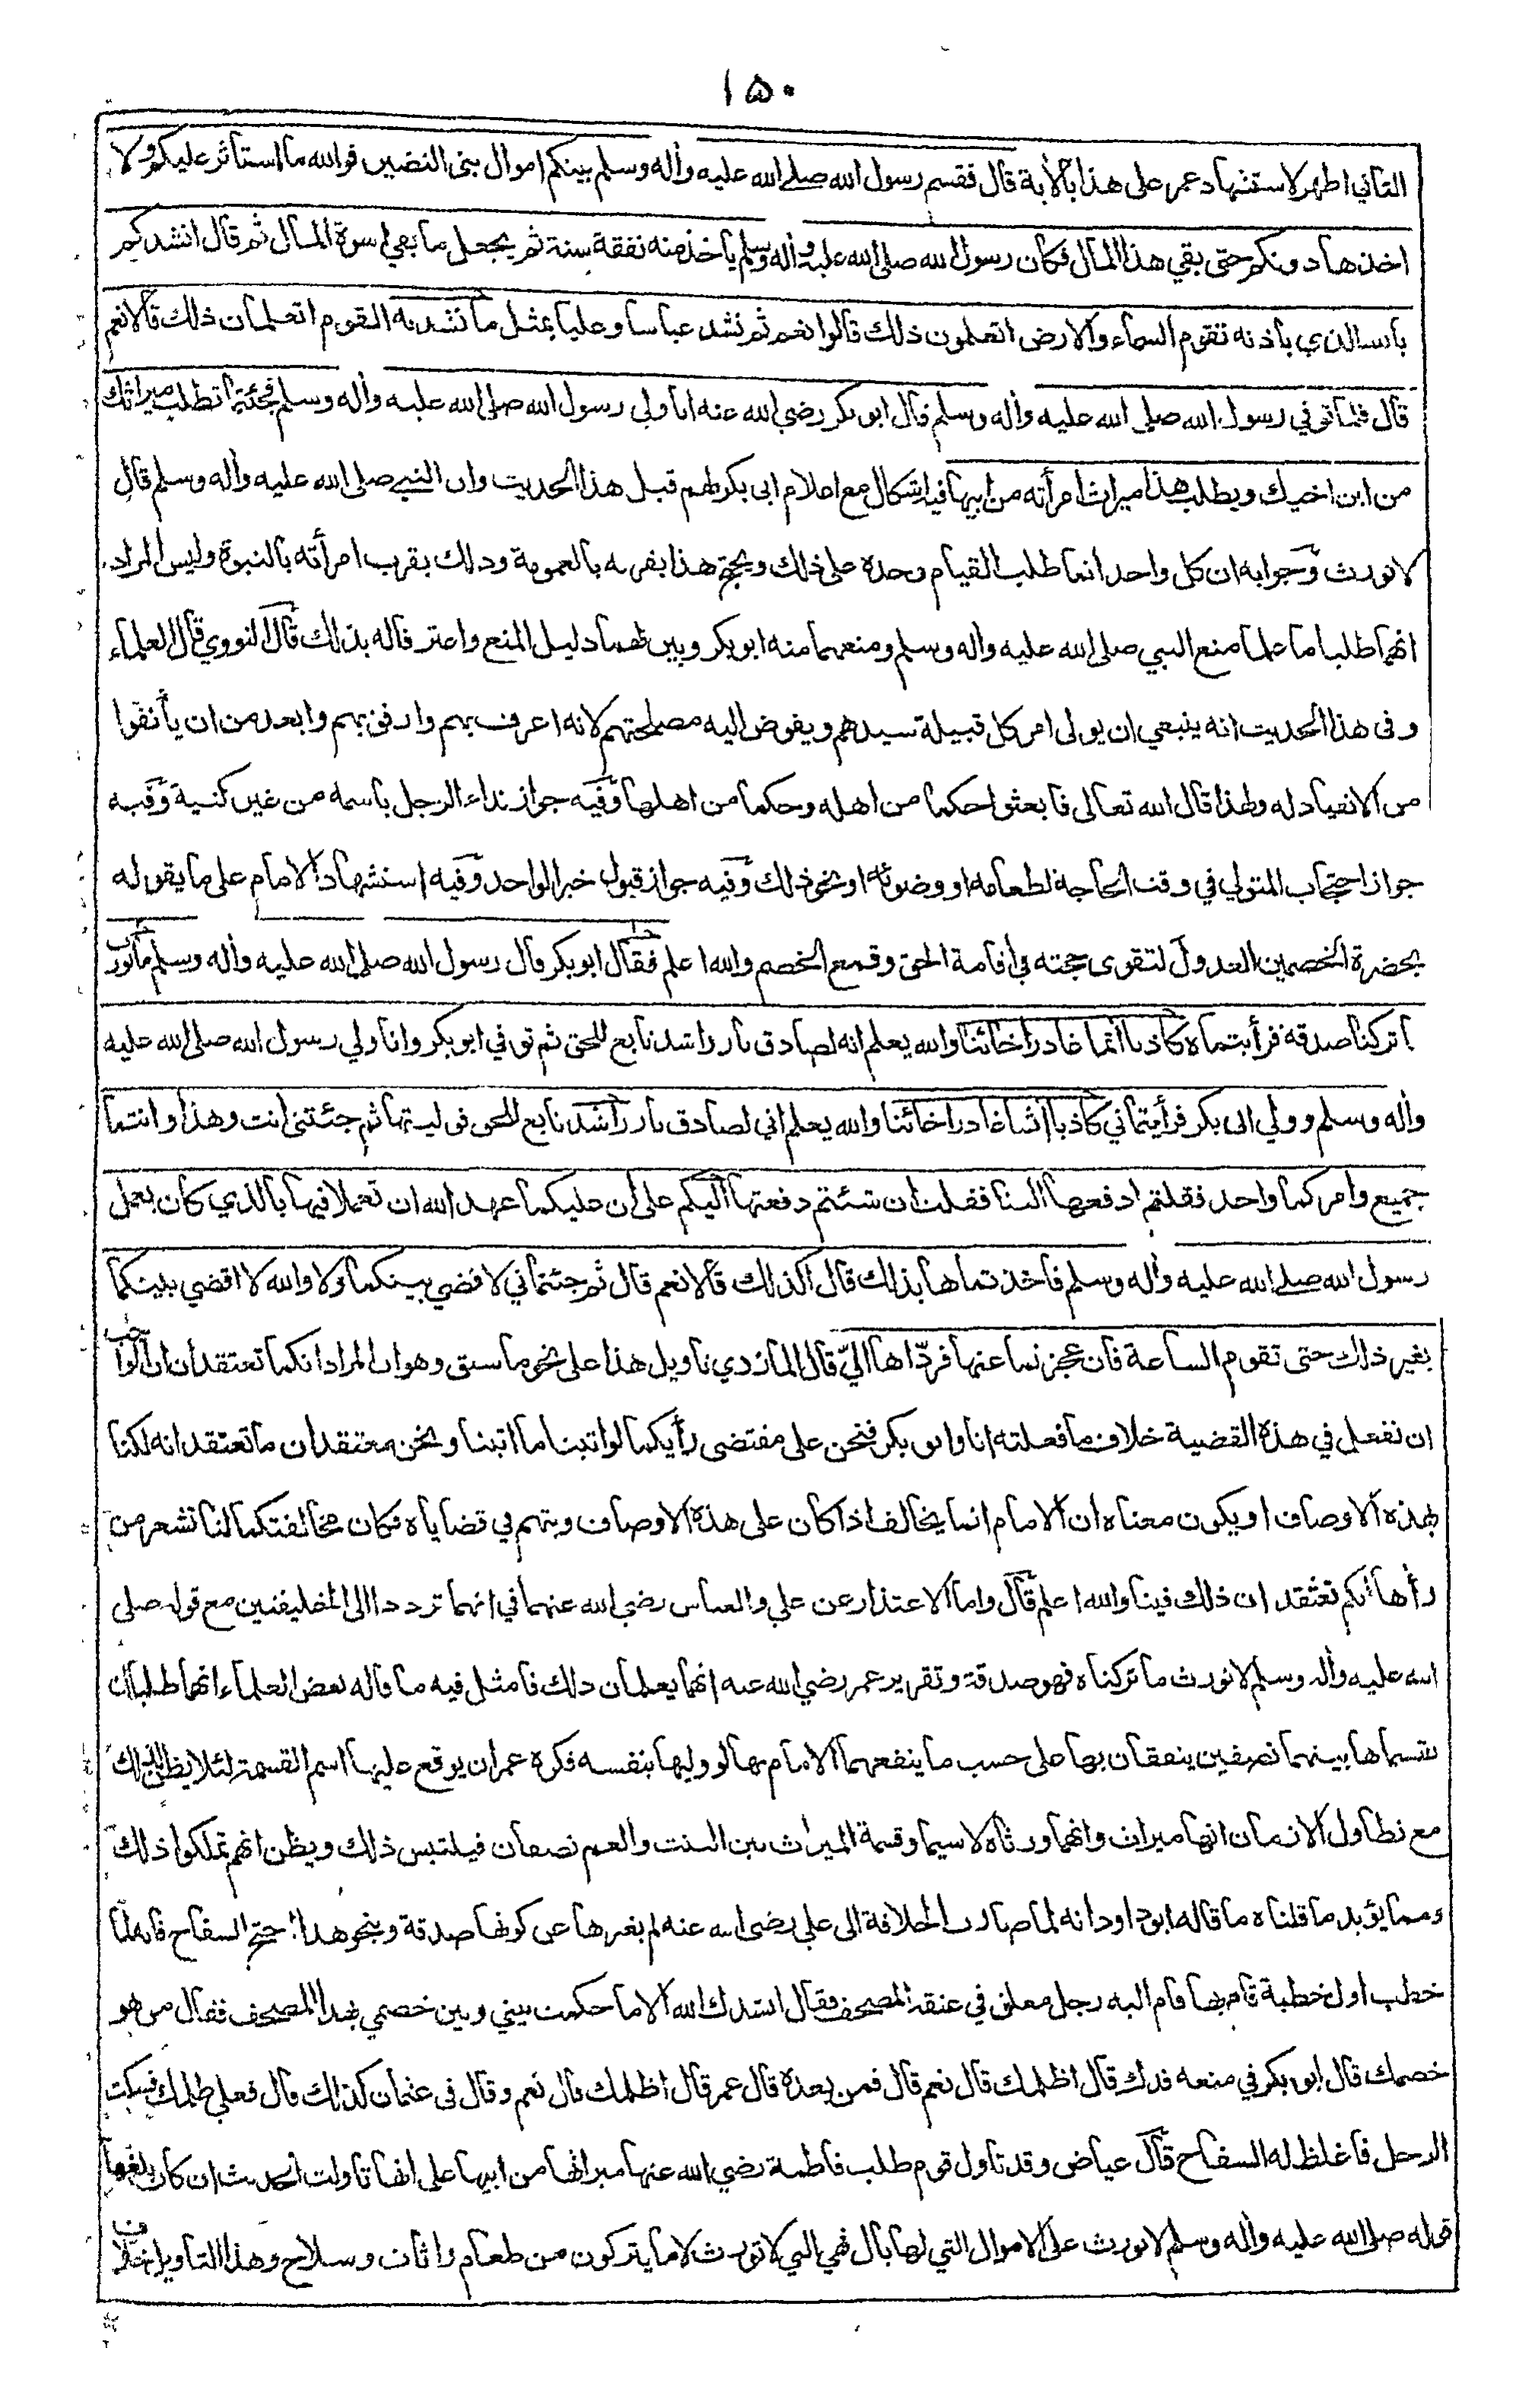 ١٥٠
الثاني اظهر لاستشهاد عمر على هذا بالأية قال فقسم رسول الله صلى الله عليه وأله وسلم بينكم اموال بني النضير فوالله ما استأثر عليكم ولا
اخذها دونكم حتى بقي هذا المال فكان رسول الله صلى الله عليه وأله وسلم يأخذ منه نفقة سنة ثم يجعل ما بقي اسوة المال ثم قال انشدكم
بالله الذي باذنه تقوم السماء والارض اتعلمون ذلك قالوا نعم ثم نشد عباسا وعليا بمثل ما نشد به القوم اتعلمان ذلك قالا نعم
قال فلما توفي رسول الله صلى الله عليه وأله وسلم قال ابو بكر رضي الله عنه انا ولي رسول الله صلى الله عليه وأله وسلم فجئتما تطلب ميراثك
من ابن اخيك ويطلب هذا ميراث امرأته من ابيها فيه اشكال مع اعلام ابى بكر لهم قبل هذا الحديث وان النبي صلى الله عليه وأله وسلم قال
لا نورث وجوابه ان كل واحد انما طلب القيام وحده على ذلك ويحتج هذا بقربه بالعمومة وذلك بقرب امرأته بالبنوة وليس المراد
انهما طلبا ما علما منع النبي صلى الله عليه وأله وسلم ومنعهما منه ابو بكر وبين لهما دليل المنع واعترفا له بذلك قال النووي قال العلماء
وفى هذا الحديث انه ينبغي ان يولى امر كل قبيلة سيدهم ويفوض اليه مصلحتهم لانه اعرف بهم وارفق بهم وابعد من ان يأنفوا
من الانقياد له ولهذا قال الله تعالى فابعثوا حكما من اهله وحكما من اهلها وفيه جواز نداء الرجل باسمه من غير كنية وفيه
جواز احتجاب المتولي في وقت الحاجة لطعامه او وضوئه او نحو ذلك وفيه جواز قبول خبر الواحد وفيه استشهاد الامام على ما يقوله
بحضرة الخصمين العدول لتقوى حجته في اقامة الحق وقمع الخصم والله اعلم فقال ابو بكر قال رسول الله صلى الله عليه وأله وسلم ما نورث
ما تركنا صدقة فرأيتماه كاذبا أثما غادرا خائنا والله يعلم انه لصادق بار راشد تابع للحق ثم توفي ابو بكر وانا ولي رسول الله صلى الله عليه
وأله وسلم وولي ابى بكر فرأيتماني كاذبا أثما غادرا خائنا والله يعلم اني لصادق بار راشد تابع للحق فوليتها ثم جئتني انت وهذا وانتما
جميع وامركما واحد فقلتم ادفعها الينا فقلت ان شئتم دفعتها اليكم على ان عليكما عهد الله ان تعملا فيها بالذي كان يعمل
رسول الله صلى الله عليه وأله وسلم فاخذتماها بذلك قال اكذلك قالا نعم قال ثم جئتماني لاقضي بينكما ولا والله لا اقضي بينكما
بغير ذلك حتى تقوم الساعة فان عجزتما عنها فردّاها اليّ قال المازدي تاويل هذا على نحو ما سبق وهو ان المراد انكما تعتقدان ان الواجب
ان نفعل في هذه القضية خلاف ما فعلته انا وابو بكر فنحن على مقتضى رأيكما لو اتينا ما اتينا ونحن معتقدان ما تعتقدانه لكنا
بهذه الاوصاف او يكون معناه ان الامام انما يخالف اذا كان على هذه الاوصاف ويتهم في قضاياه فكان مخالفتكما لنا تشعر من
رأها انكم تعتقدان ذلك فينا والله اعلم قال واما الاعتذار عن علي والعباس رضي الله عنهما في انهما ترددا الى الخليفتين مع قوله صلى
الله عليه وأله وسلم لا نورث ما تركناه فهو صدقة وتقرير عمر رضي الله عنه انهما يعلمان ذلك فامثل فيه ما قاله بعض العلماء انهما طلبا ان
يقتسماها بينهما نصفين ينفقان بها على حسب ما ينفعهما الامام بها لو وليها بنفسه فكره عمر ان يوقع عليها اسم القسمة لئلا يظن لذلك
مع تطاول الازمان انها ميراث وانهما ورثاه لا سيما وقسمة الميراث بين البنت والعم نصفان فيلتبس ذلك ويظن انهم تملكوا ذلك
ومما يؤيد ما قلناه ما قاله ابو داود انه لما صارت الخلافة الى علي رضي الله عنه لم يغيرها عن كونها صدقة وبنحو هذا احتج السفاح فانه لما
خطب اول خطبة قام بها قام اليه رجل معلق في عنقه المصحف فقال انشدك الله الا ما حكمت بيني وبين خصمي بهذا المصحف فقال من هو
خصمك قال ابو بكر في منعه فدك قال اظلمك قال نعم قال فمن بعده قال عمر قال اظلمك قال نعم وقال فى عثمان كذلك قال فعلي ظلمك فسكت
الرجل فاغلظ له السفاح قال عياض وقد تاول قوم طلب فاطمة رضي الله عنها ميراثها من ابيها على انها تاولت الحديث ان كان بلغها
قوله صلى الله عليه وأله وسلم لا نورث على الاموال التي لها بال فهي التي لا تورث لا ما يتركون من طعام واثاث وسلاح وهذا التاويل خلاف